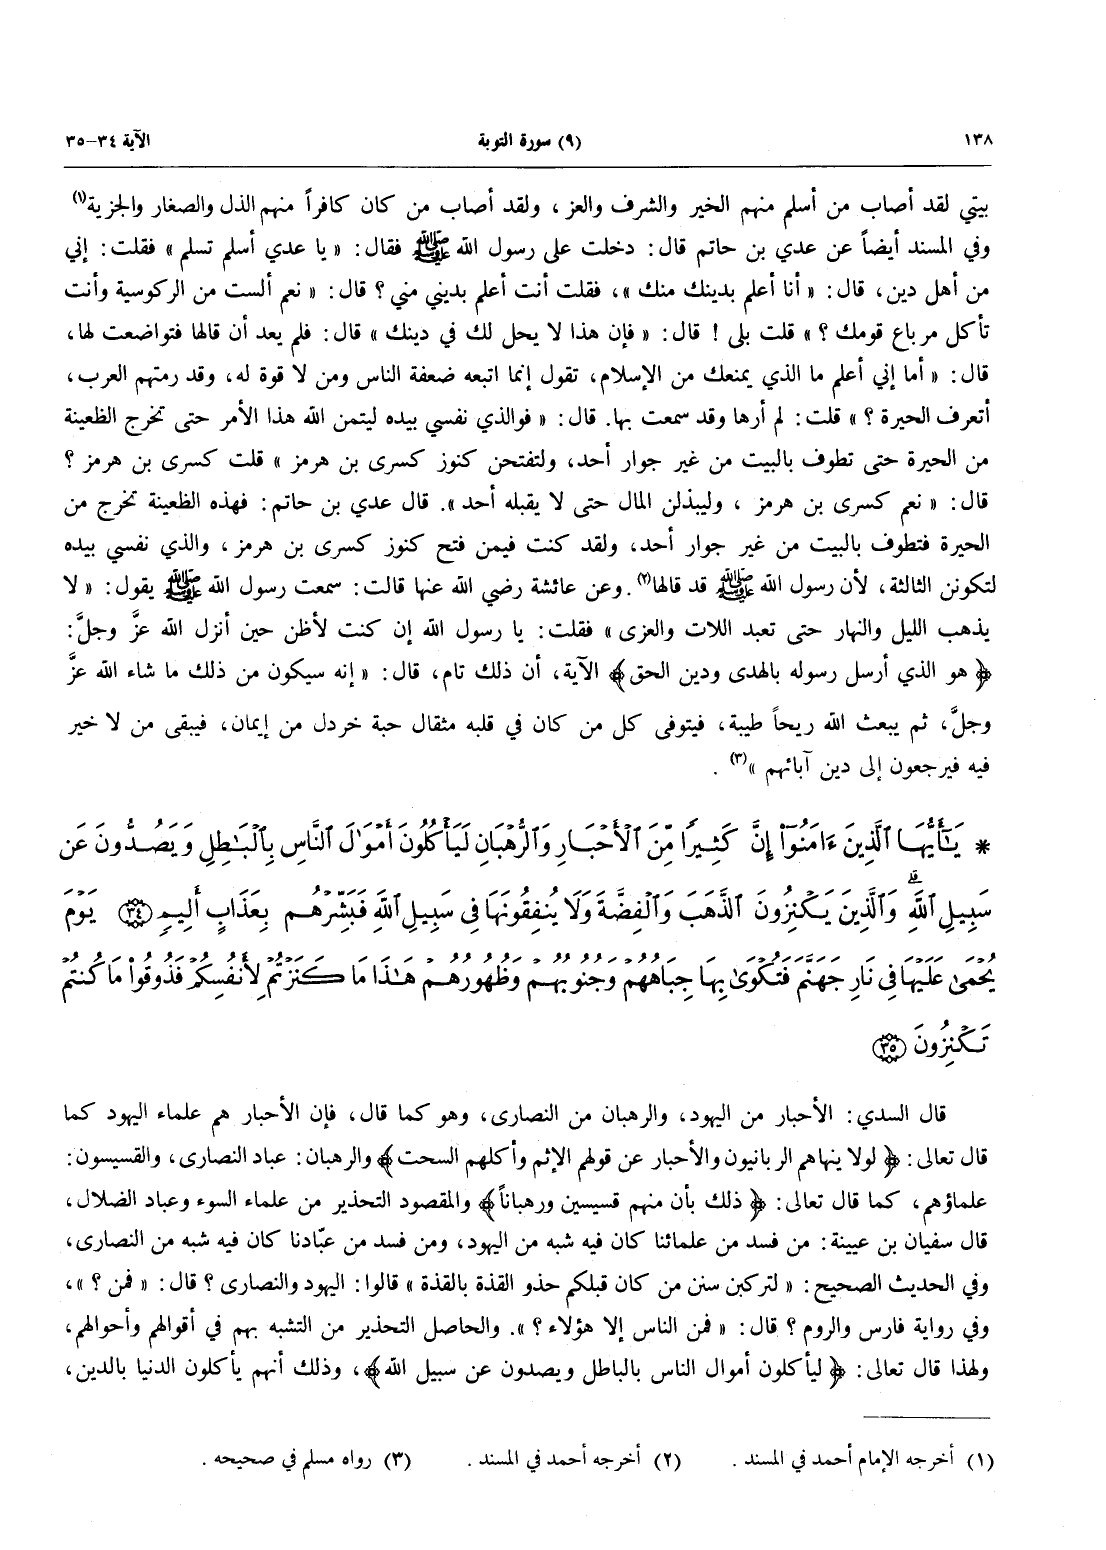 ١٣٨ (٩) سورة التوبة الآية ٣٤-٣٥
بيتي لقد أصاب من أسلم منهم الخير والشرف والعز ، ولقد أصاب من كان كافراً منهم الذل والصغار والجزية(١)
وفي المسند أيضاً عن عدي بن حاتم قال: دخلت على رسول الله ﷺ فقال: « يا عدي أسلم تسلم » فقلت: إني
من أهل دين، قال: « أنا أعلم بدينك منك »، فقلت أنت أعلم بديني مني ؟ قال: « نعم ألست من الركوسية وأنت
تأكل مرباع قومك ؟ » قلت بلى ! قال: « فإن هذا لا يحل لك في دينك » قال: فلم يعد أن قالها فتواضعت لها،
قال: « أما إني أعلم ما الذي يمنعك من الإسلام، تقول إنما اتبعه ضعفة الناس ومن لا قوة له، وقد رمتهم العرب،
أتعرف الحيرة ؟ » قلت: لم أرها وقد سمعت بها. قال: « فوالذي نفسي بيده ليتمن الله هذا الأمر حتى تخرج الظعينة
من الحيرة حتى تطوف بالبيت من غير جوار أحد، ولتفتحن كنوز كسرى بن هرمز » قلت كسرى بن هرمز ؟
قال: « نعم كسرى بن هرمز ، وليبذلن المال حتى لا يقبله أحد ». قال عدي بن حاتم: فهذه الظعينة تخرج من
الحيرة فتطوف بالبيت من غير جوار أحد، ولقد كنت فيمن فتح كنوز كسرى بن هرمز ، والذي نفسي بيده
لتكونن الثالثة، لأن رسول الله ﷺ قد قالها(٢). وعن عائشة رضي الله عنها قالت: سمعت رسول الله ﷺ يقول: « لا
يذهب الليل والنهار حتى تعبد اللات والعزى » فقلت: يا رسول الله إن كنت لأظن حين أنزل الله عزَّ وجلَّ:
﴿ هو الذي أرسل رسوله بالهدى ودين الحق﴾ الآية، أن ذلك تام، قال: « إنه سيكون من ذلك ما شاء الله عزَّ
وجلَّ، ثم يبعث الله ريحاً طيبة، فيتوفى كل من كان في قلبه مثقال حبة خردل من إيمان، فيبقى من لا خير
فيه فيرجعون إلى دين آبائهم »(٣) .
* يَـٰٓأَيُّهَا ٱلَّذِينَ ءَامَنُوٓا۟ إِنَّ كَثِيرًا مِّنَ ٱلْأَحْبَارِ وَٱلرُّهْبَانِ لَيَأْكُلُونَ أَمْوَٰلَ ٱلنَّاسِ بِٱلْبَـٰطِلِ وَيَصُدُّونَ عَن
سَبِيلِ ٱللَّهِ ۗ وَٱلَّذِينَ يَكْنِزُونَ ٱلذَّهَبَ وَٱلْفِضَّةَ وَلَا يُنفِقُونَهَا فِى سَبِيلِ ٱللَّهِ فَبَشِّرْهُم بِعَذَابٍ أَلِيمٍ ﴿٣٤﴾ يَوْمَ
يُحْمَىٰ عَلَيْهَا فِى نَارِ جَهَنَّمَ فَتُكْوَىٰ بِهَا جِبَاهُهُمْ وَجُنُوبُهُمْ وَظُهُورُهُمْ هَـٰذَا مَا كَنَزْتُمْ لِأَنفُسِكُمْ فَذُوقُوا۟ مَا كُنتُمْ
تَكْنِزُونَ ﴿٣٥﴾
قال السدي: الأحبار من اليهود، والرهبان من النصارى، وهو كما قال، فإن الأحبار هم علماء اليهود كما
قال تعالى: ﴿ لولا ينهاهم الربانيون والأحبار عن قولهم الإثم وأكلهم السحت﴾ والرهبان: عباد النصارى، والقسيسون:
علماؤهم، كما قال تعالى: ﴿ ذلك بأن منهم قسيسين ورهباناً﴾ والمقصود التحذير من علماء السوء وعباد الضلال،
قال سفيان بن عيينة: من فسد من علمائنا كان فيه شبه من اليهود، ومن فسد من عبّادنا كان فيه شبه من النصارى،
وفي الحديث الصحيح: « لتركبن سنن من كان قبلكم حذو القذة بالقذة » قالوا: اليهود والنصارى ؟ قال: « فمن ؟ »،
وفي رواية فارس والروم ؟ قال: « فمن الناس إلا هؤلاء ؟ ». والحاصل التحذير من التشبه بهم في أقوالهم وأحوالهم،
ولهذا قال تعالى: ﴿ ليأكلون أموال الناس بالباطل ويصدون عن سبيل الله﴾، وذلك أنهم يأكلون الدنيا بالدين،
(١) أخرجه الإمام أحمد في المسند . (٢) أخرجه أحمد في المسند . (٣) رواه مسلم في صحيحه .